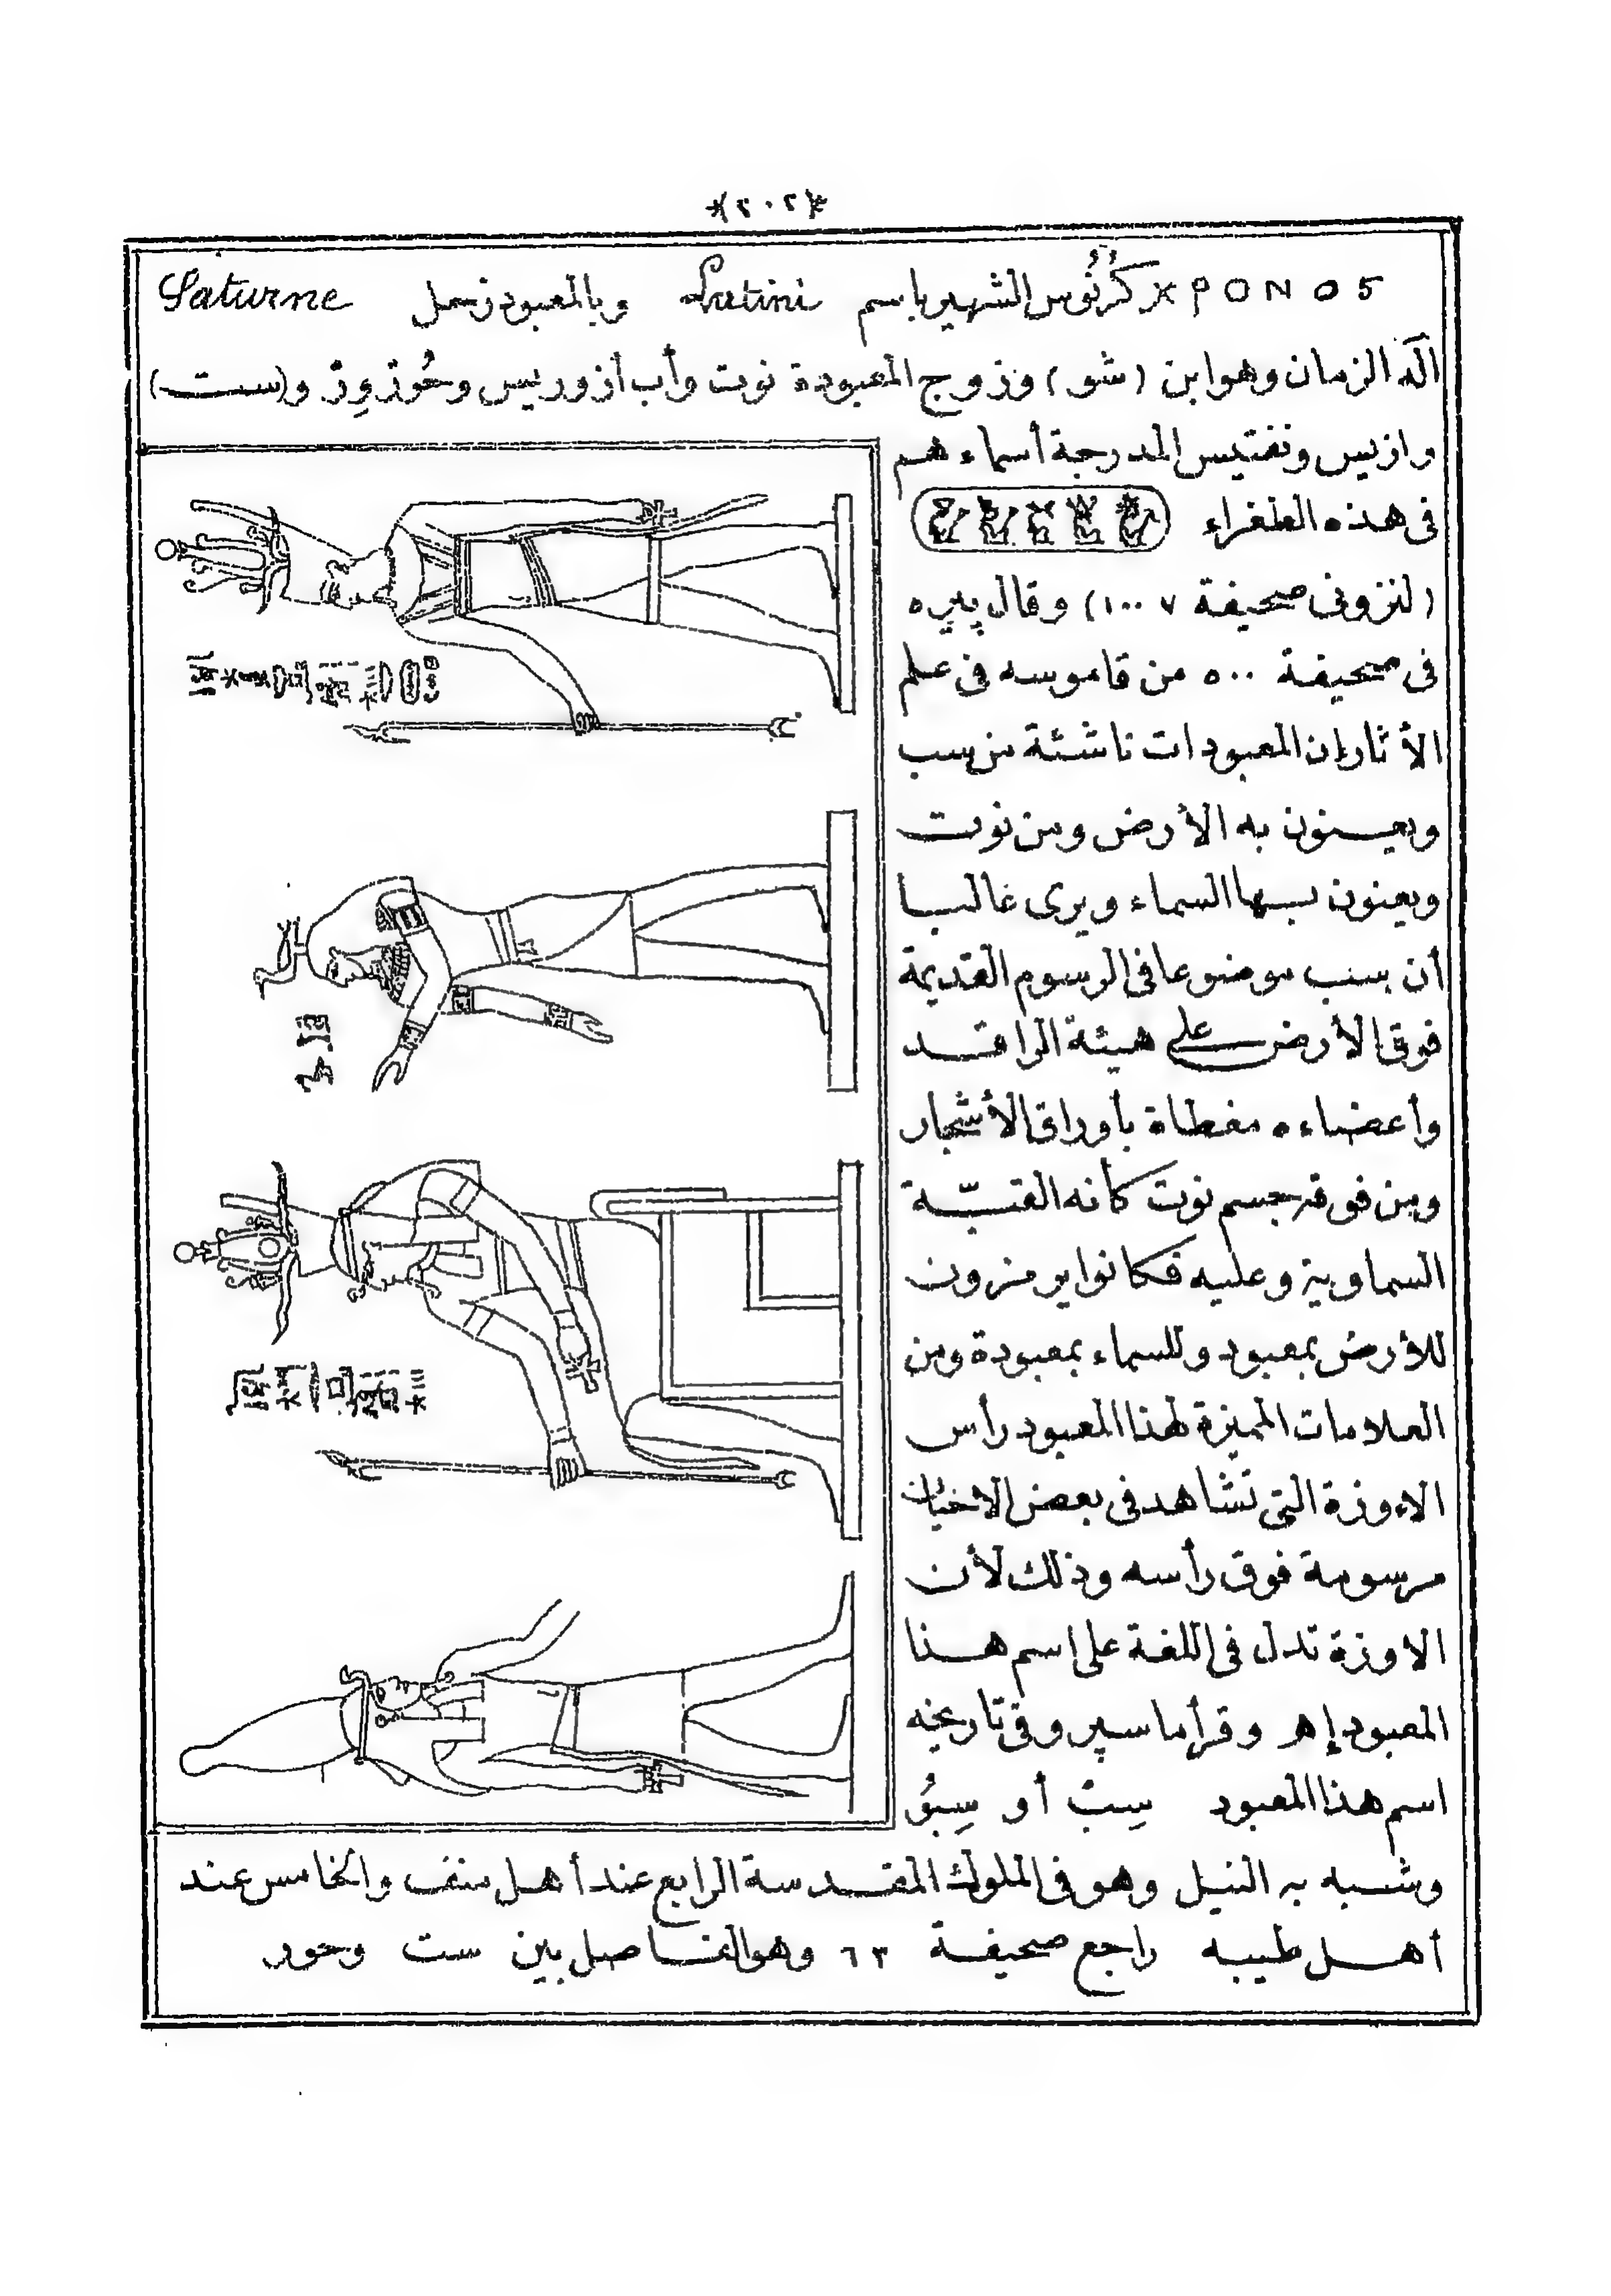 *(٢٠٢)*
XPONO5 كرُنُوس الشهير باسم Latini وبالمعبود زحل Saturne
الَه الزمان وهو ابن (شو) وزوج المعبودة نوت وأب أزوريس وحُوَرْوِرْ و(ست)
وازيس ونفتيس المدرجة أسماءهم
فى هذه الطغراء
(لنزونى صحيفة ١٠٠٧) وقال پيره
فى صحيفة ٥٠٠ من قاموسه فى علم
الأثار إن المعبودات ناشئة من سب
ويعنون به الأرض ومن نوت
ويعنون بها السماء ويرى غالبا
أن سب موضوعا فى الرسوم القديمة
فوق الأرض على هيئة الراقد
وأعضاءه مغطاة بأوراق الأشجار
ومن فوقه جسم نوت كأنه القبّة
السماوية وعليه فكانوا يرمزون
للأرض بمعبود وللسماء بمعبودة ومن
العلامات المميزة لهذا المعبود رأس
الاوزة التى تشاهد فى بعض الاحيان
مرسومة فوق رأسه وذلك لأن
الاوزة تدل فى اللغة على اسم هذا
المعبود إهـ وقرأ ماسپرو فى تاريخه
اسم هذا المعبود سِبْ أو سِبُو
وشبه به النيل وهو فى الملوك المقدسة الرابع عند أهل منف والخامس عند
أهل طيبه راجع صحيفة ٦٣ وهو الفاصل بين ست وحور